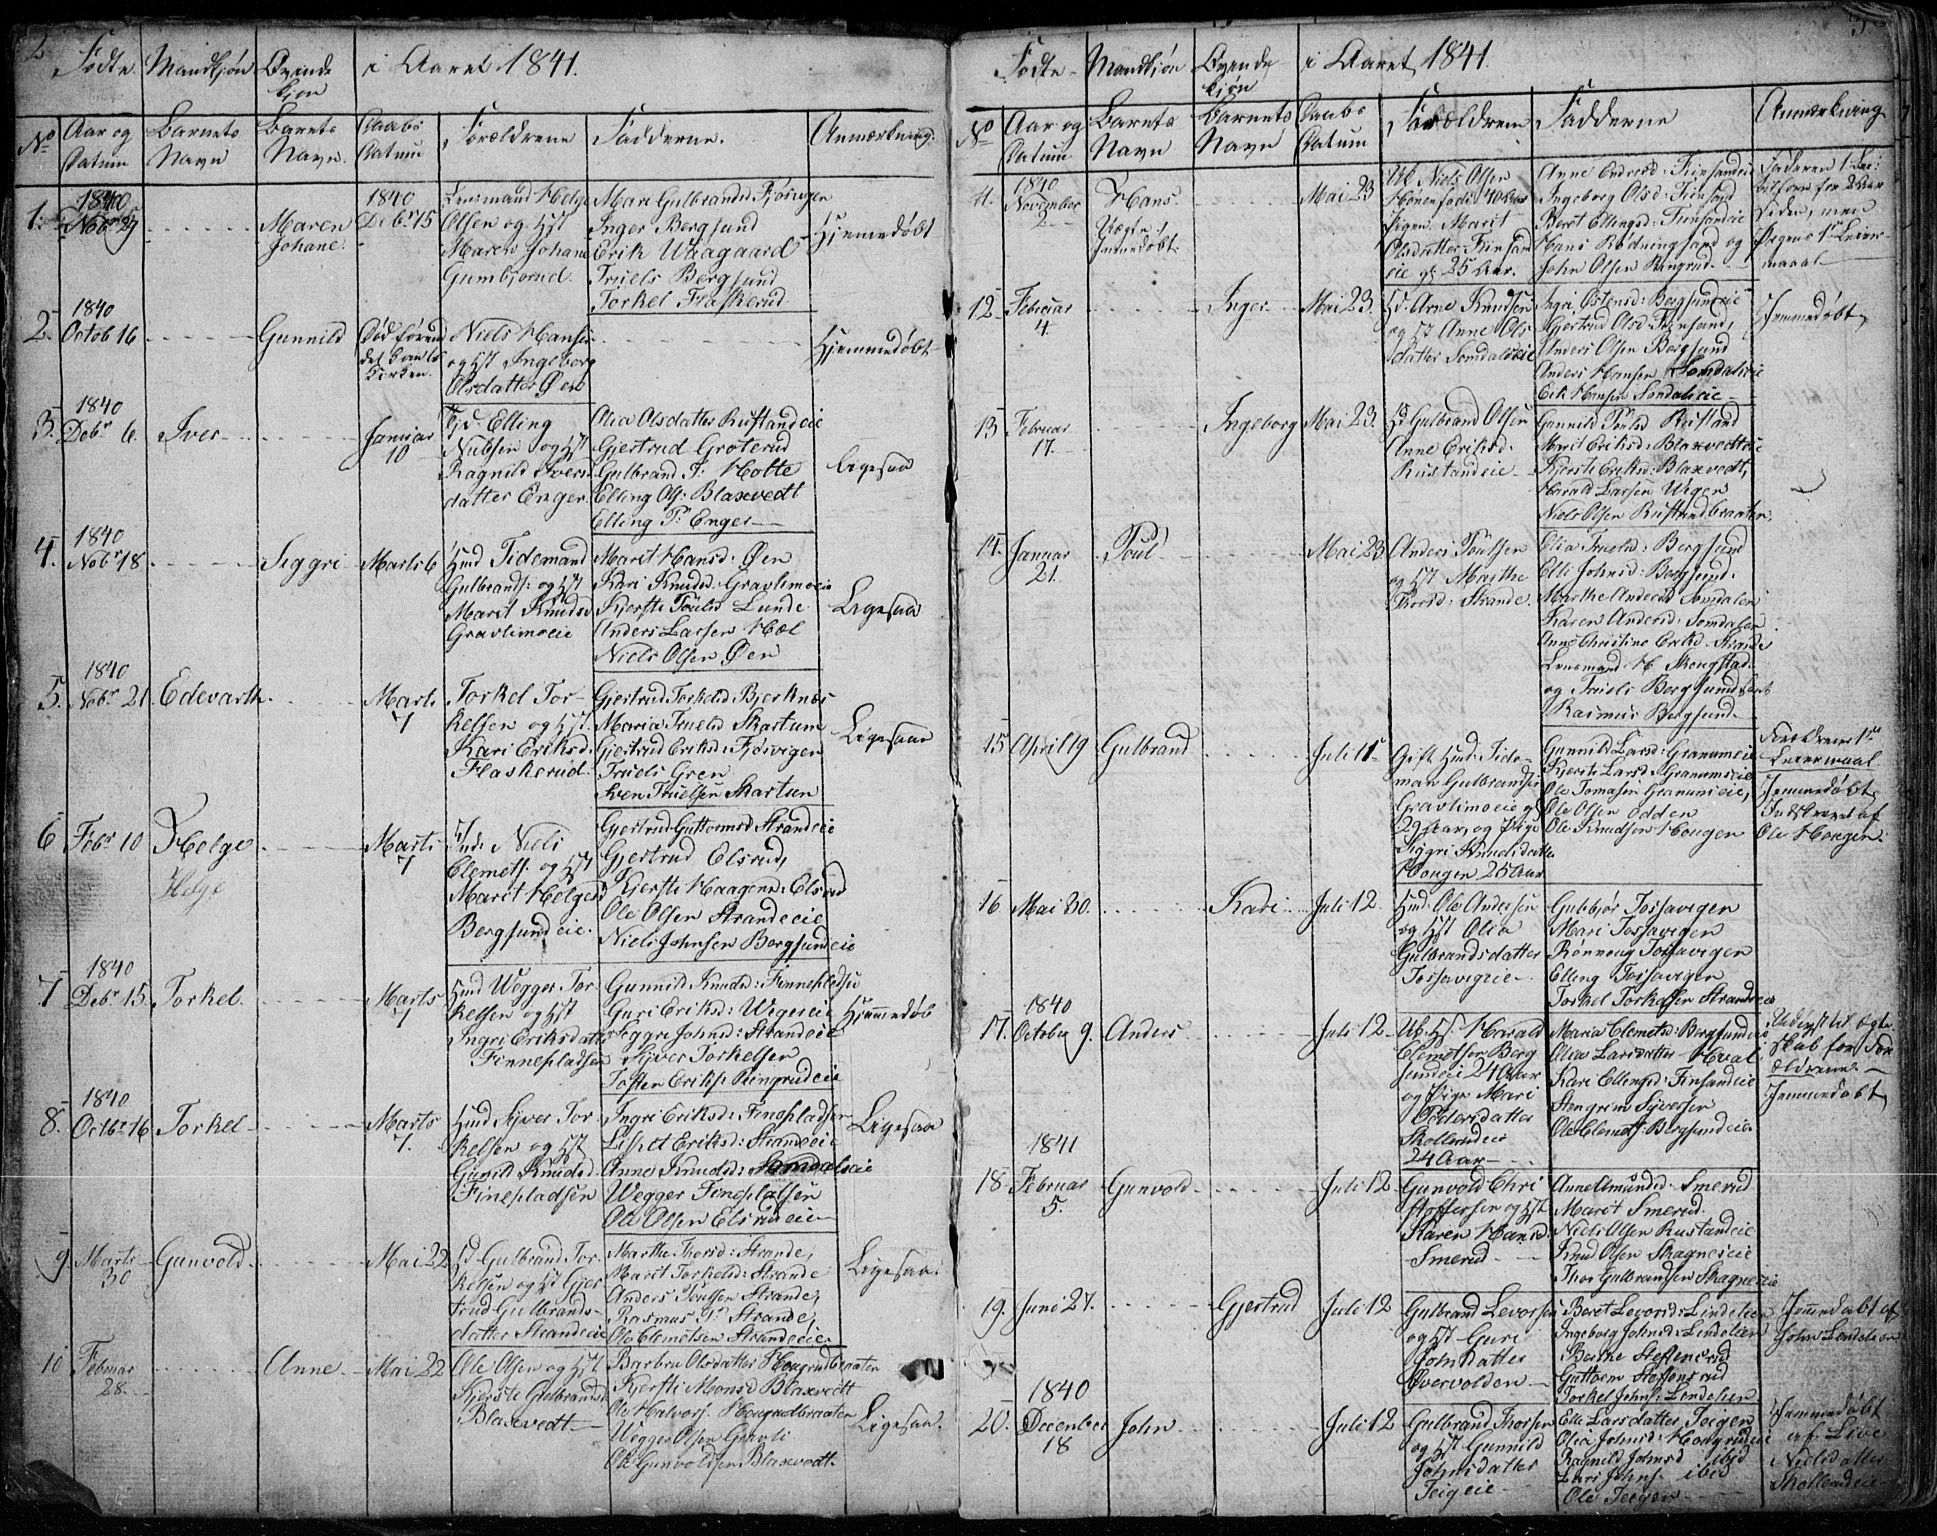 2
Fødte Mandkjøn Qvinde kjøn i Aaret 1841.
No Aar og Datum Barnets Navn Barnets Navn Daabs Datum Forældrene Fadderne. Anmærkning.
1. 1840 Nobr 29 Maren Johane. 1840 Debr 15
Lensmand Helge
Olsen og Hst
Maren Johane
Gumbjørud.
Mari Gulbrandsd Fjøsvigen
Inger Bergsund
Erik Waagaard
Truels Bergsund
Torkel Flaskerud
Hjemmedøbt
2. 1840 Octob 16 Gunnild Død føren det kom til Kirken.
Niels Hansen
og Hst Ingeborg
Olsdatter Øen
Hjemmedøbt
3. 1840 Debr 6. Iver Januar 10
Elling
Nielsen og Hst
Ragnild Ivers
datter Enger
Olia Olsdatter Rustandeie
Gjertrud Groterud
Gulbrand T. Holte
Elling Ols. Blaxvedt
Elling P. Enger
Ligesaa
4. 1840 Nobr 18 Siggri Marts 6
Hmd Tidemand
Gulbrands: og Hst
Marit Knudsd
Gravlimoeie
Marit Hansd: Øen
Kari Knudsd: Gravlimoeie
Kjersti Poulsd Lunde
Anders Larsen Hæl
Niels Olsen Øen
Ligesaa
5. 1840 Nobr 21 Edevarth Marts 7
Torkel Tor-
kelsen og Hst.
Kari Eriksd.
Flaskerud.
Gjertrud Torkelsd: Bjerknæs
Maria Truelsd Skartum
Gjertrud Eriksd: Fjøsvigen
Truels Gren
Sven Truelsen Skartun
Ligesaa
6 Febr 10 Helge Marts 7
Helge
Ind: Niels
Clemets. og Hst
Marit Helgesd
Bergsundeie.
Gjertrud Guttormsd Strandeie
Gjertrud Elsrud,
Kjersti Haagensd: Elsrud
Ole Olsen Strandeeie
Niels Johnsen Bergsundeie
7 1840 Debr 15. Torkel. Marts 7
Hmd Wegger Tor
kelsen og Hst
Ingri Eriksdatter
Finnepladsen
Gunnild Knudsd: Finnepladsen
Guri Eriksd: Wegereie
Siggri Johnsd: Strandeeie
Syver Torkelsen
Tosten Eriks. Ringrudeie
Hjemmedøb
8. 1840 Octbr 16 Torkel Marts 7.
Hmd Syver Tor
kelsen og Hst
Gunild Knudsd.
Finepladsen
Ingri Eriksd: Finepladsen
Lisbet Eriksd: Strandeeie
Anne Knudsd: Somdalseie
Wegger Finepladsen
Ole Olsen Elsrudeie
Ligesaa
9. Marts 30 Gunvold. Mai 22
Gulbrand Tor
kelsen og Hst Gjer
trud Gulbrands-
datter Strandeeie
Marthe Thorsd: Strande,
Marit Torkelsd: Strande
Anders Poulsen Strande,
Rasmus P. Strande,
Ole Clemetsen Strandeeie
Ligesaa.
10 Februar 28. Anne Mai 22
Ole Olsen og Hst
Kjerste Gulbrandsd
Blaxvedt
Barbru Olsdatter Hougrudbraaten
Kjersti Monsd Blaxvedt
Ole Halvors. Hougrudbraaten
Wegger Olsen Gravli
Ole Gunvoldsen Blaxvedt.
Ligesaa.
3
Fødte Mandkjøn Qvinde kjøn i Aaret 1841.
No Aar og Datum Barnets Navn Barnets Navn Daabs Datum Forældrene Fadderne Anmærkning
11. 1840 November 2 Hans Uægte Hjemmedøbt. Mai 23
Ub Niels Olsen
Hønenfodi 40 Aar
Pigen Marit
Olsdatter Finsand
eie gl 25 Aar.
Anne Andersd: Finsandeie
Ingeborg Olsd: Finsand
Beret Ellingsd: Finsandeie
Hans Rødningsand og
John Olsen Ringrud
Faderen 1ste Lei:
for 2 Aar
siden, men
Pigens 1ste Leier
maal
12 Februar 4. Inger Mai 23.
Arne Knudsen
og Hst Anne Ols
datter Somdalseie
Ingri Østensd: Bergsundeie
Gjertrud Olsd Finsand,
Anders Olsen Bergsund
Anders Hansen Somdalseie
Erik Hansen Somdalseie
Hjemmedøbt
13 Februar 17. Ingeborg Mai 23.
Gulbrand Olsen
Anne Eriksd:
Rustandeie
Gunnild Poulsd Rustand
Marit Eriksd: Blaxvedteie
Kjersti Eriksd: Blaxvedt,
Harald Larsen Wegen
Niels Olsen Rustandbraaten,
14. Januar 21. Poul Mai 23
Anders Poulsen
og Hst Marthe
Thorsd: Strande.
Olia Truelsd: Bergsund
Elli Johnsd: Bergsund.
Marthe Andersd Somdalen
Karen Andersd: Somdalen
Anne Christine Eriksd. Strande
Lensmand H. Skougstad
og Truels Bergsund samt
Rasmus Bergsund
15 April 19 Gulbrand Juli 11
Gift Hmd: Tide-
man Gulbrandsen
Gravlimoeie gl
29 Aar, og Pige
Siggri Knudsdatter
Hougen 25 Aar
Gunnild Larsd: Granumeie
Kjersti Larsd. Granumseie
Ole Tomasen Granumeie,
Ole Olsen Odden
Ole Knudsen Hougen
Forældrenes 1ste
Leiermaal
Hjemmedøbt
Indskrevet af
Ole Hougen.
16 Mai 30. Kari Juli 12.
Hmd: Ole Andersen
og Hst Olia
Gulbrandsdatter
Tossevigeie
Gubbjør Tossavigen
Mari Tossavigen
Rønnoug Tossavigen
Elling Tossavigen
Torkel Torkelsen Strandeeie
17. 1840 October 9. Anders Juli 12
Ub. Hs. Harald
Clemetsen Berg
sundeie 24 Aar
og Pige Mari
Pedersdatter
Skollerudeie
24 Aar
Maria Clemetsd: Bergsundeie
Olea Larsdatter Hval
Kari Ellingsd: Finsandeie
Stengrim Syversen
Ole Clemets: Bergsundeie
Uægte
skab for For
ældrene.
Hjemmedøbt
18 1841 Februar 5. Gunvold Juli 12
Gunvold Chri
stoffersen og Hst
Karen Hansd.
Smerud
Anne Amundsd. Smerud
Marit Smerud.
Niels Olsen Rustandeie
Knud Olsen Skagneseie
Thor Gulbrandsen Skagneseie
19. Juni 27. Gjertrud Juli 12
Gulbrand Levorsen
og Hst Guri
Johnsdatter
Øvervolden
Beret Levorsd: Lindelien
Ingeborg Johnsd: Lindelien
Berthe Steffensrud
Guttorm Steffensrud
Torkel Johns: Lindelien
Hjemmedøbt af
John Lindelien
20. 1840 December 18 John Juli 12
Gulbrand Thorsen
og Hst Gunnild
Johnsdatter
Teigeie
Elli Larsdatter Teigen
Olia Johnsd: Hougrudeie
Ragnild Johnsd ibid
Lars Johns. ibid
Ole Teigen
Hjemmedøbt
af Live
Nielsdatter
Skollerudeie